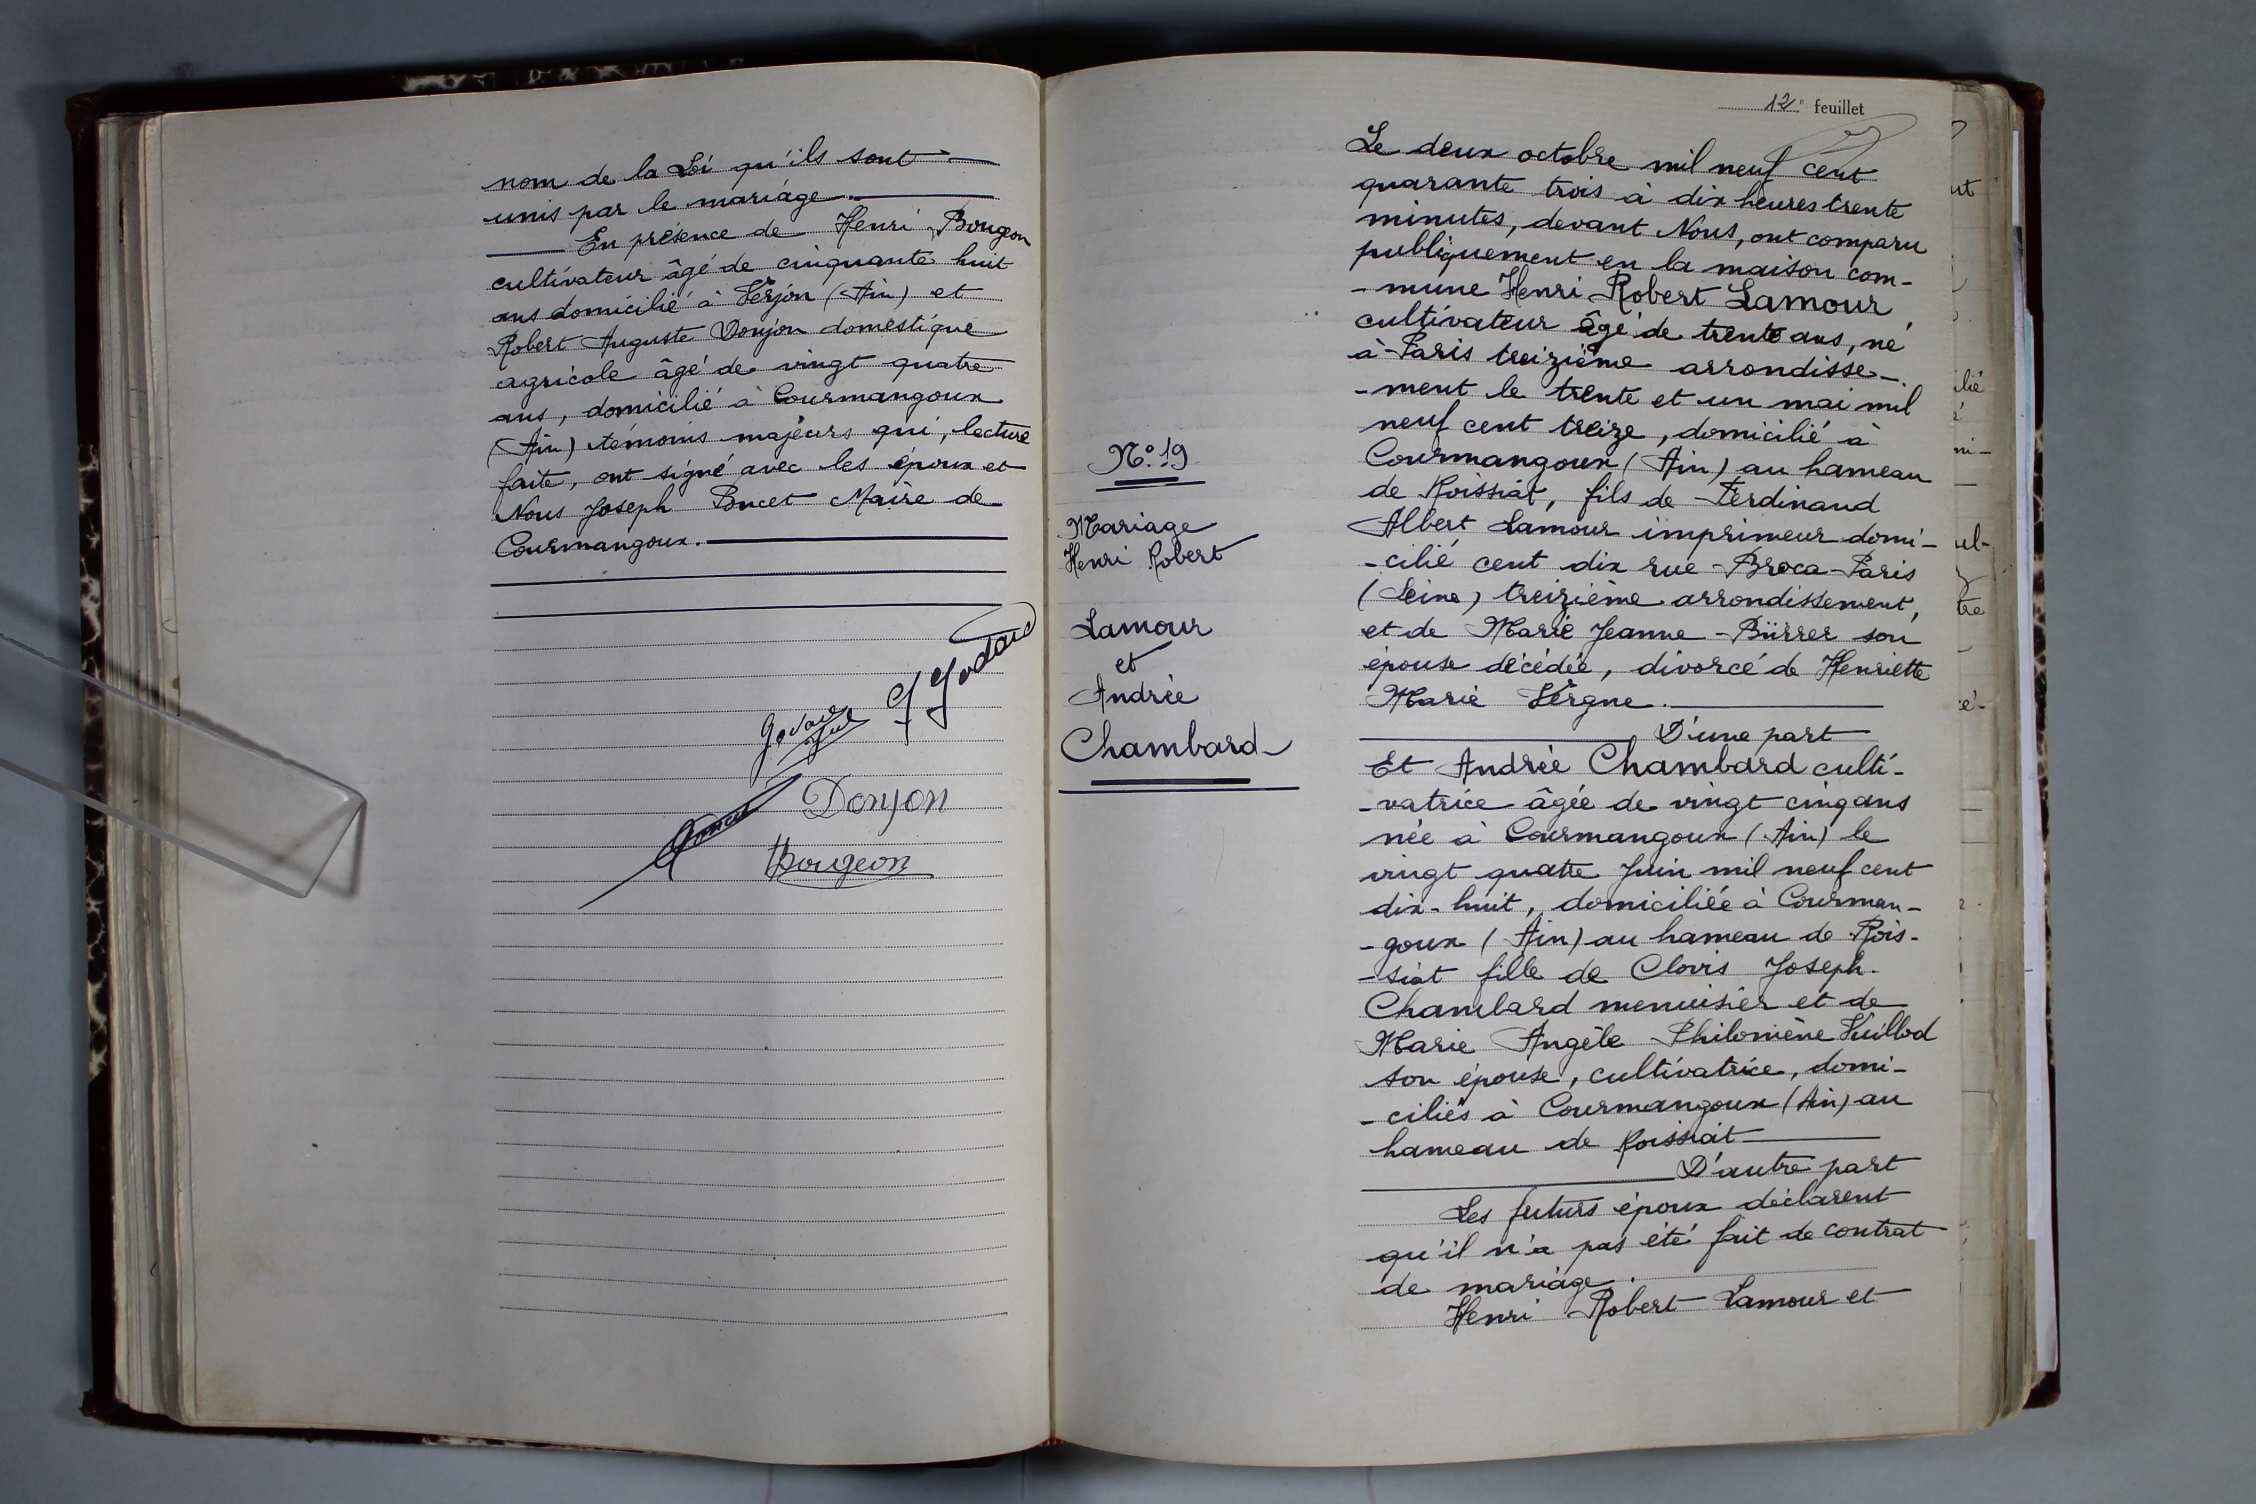 nom de la Loi qu'ils sont
unis par le mariage.
En présence de Henri Bougeon
cultivateur âgé de cinquante huit
ans domicilié à Verjon (Ain) et
Robert Auguste Donjon domestique
agricole âgé de vingt quatre
ans, domicilié à Courmangoux
(Ain) témoins majeurs qui, lecture
faite, ont signé avec les époux et
Nous Joseph Poncet Maire de
Courmangoux.
Donjon
Bougeon
12e feuillet
No 19
Mariage
Henri Robert
Lamour
et
Andrée
Chambard
Le deux octobre mil neuf cent
quarante trois à dix heures trente
minutes, devant Nous, ont comparu
publiquement en la maison com-
-mune Henri Robert Lamour
cultivateur âgé de trente ans, né
à Paris treizième arrondisse-
-ment le trente et un mai mil
neuf cent treize, domicilié à
Courmangoux (Ain) au hameau
de Roissiat, fils de Ferdinand
Albert Lamour imprimeur domi-
-cilié cent dix rue Broca Paris
(Seine) treizième arrondissement,
et de Marie Jeanne Bürrer son
épouse décédée, divorcé de Henriette
Marie Vergne.
D'une part
Et Andrée Chambard culti-
-vatrice âgée de vingt cinq ans
née à Courmangoux (Ain) le
vingt quatre Juin mil neuf cent
dix-huit, domiciliée à Courman-
-goux (Ain) au hameau de Rois-
-siat fille de Clovis Joseph
Chambard menuisier et de
Marie Angèle Philomène Vuillod
son épouse, cultivatrice, domi-
-ciliés à Courmangoux (Ain) au
hameau de Roissiat
D'autre part
Les futurs époux déclarent
qu'il n'a pas été fait de contrat
de mariage.
Henri Robert Lamour et